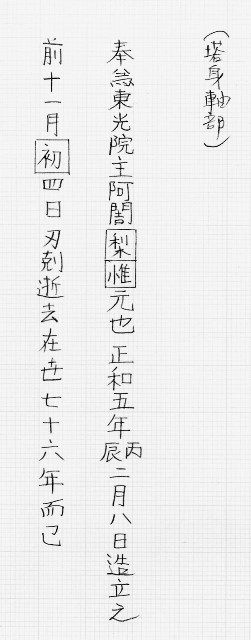 （塔身軸部）
奉為東光院主阿闍梨惟元也 正和五年丙辰二月八日造立之
前十一月初四日刃剋逝去在世七十六年而已